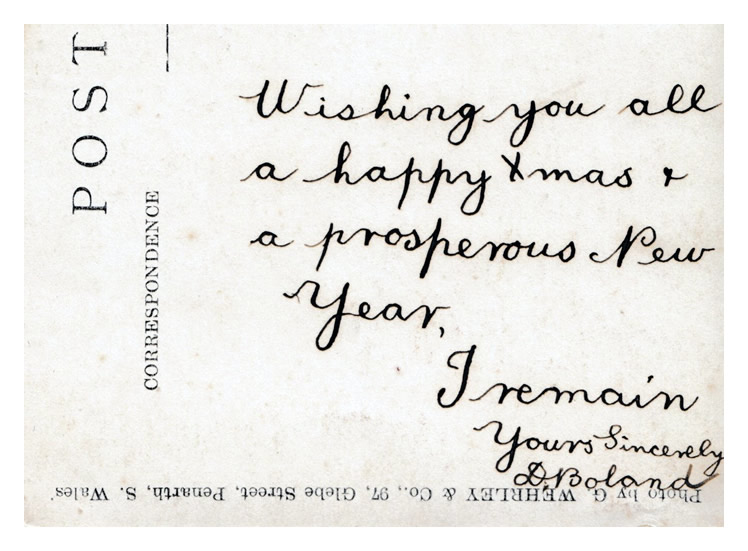 POST
CORRESPONDENCE
Wishing you all
a happy Xmas &
a prosperous New
Year,
I remain
Yours Sincerely
D. Boland
Photo by G. WEHRLEY & Co., 97, Glebe Street, Penarth, S. Wales.